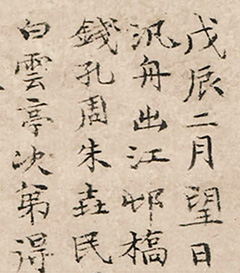 戊辰二月望日
汎舟出江邨橋
錢孔周朱垚民
白雲亭次第得